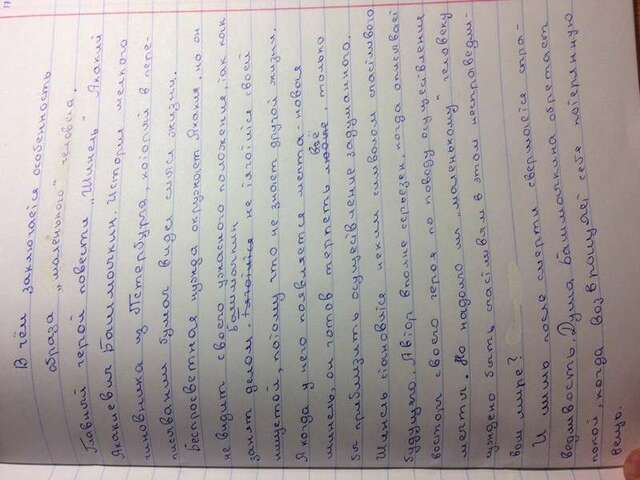 В чём заключается особенность
образа „маленького" человека.
Главный герой повести „Шинель" Акакий
Акакиевич Башмачкин. История мелкого
чиновника из Петербурга, который в пере-
писывании бумаг видел смысл жизни.
Беспросветная нужда окружает Акакия, но он
не видит своего ужасного положения, так как
занят делом. Башмачкин не тяготился своей
нищетой, потому что не знает другой жизни.
А когда у него появляется мечта - новая
шинель, он готов терпеть всё, только
бы приблизить осуществление задуманного.
Шинель становится неким символом счастливого
будущего. Автор вполне серьёзен, когда описывает
восторг своего героя по поводу осуществления
мечты. Но надолго ли „маленькому" человеку
суждено быть счастливым в этом несправедли-
вом мире?
И лишь после смерти свершается спра-
ведливость. Душа Башмачкина обретает
покой, когда возвращает себе потерянную
вещь.